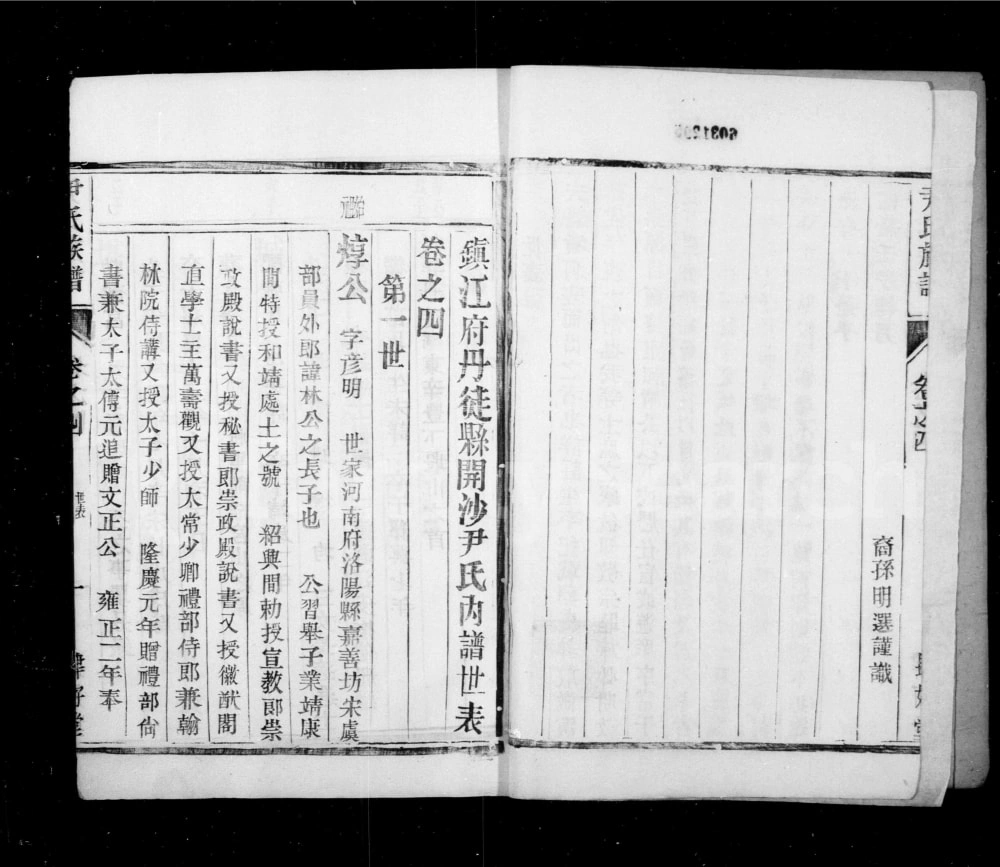 尹氏族譜
卷之四
裔孫明選謹識
鎮江府丹徒縣開沙尹氏内譜世表
卷之四
第一世
焞公 字彦明 世家河南府洛陽縣嘉善坊宋虞
部員外郎諱林公之長子也 公習舉子業靖康
間特授和靖處士之號 紹興間勅授宣教郎崇
政殿說書又授秘書郎崇政殿說書又授徽猷閣
直學士主萬壽觀又授太常少卿禮部侍郎兼翰
林院侍講又授太子少師 隆慶元年贈禮部尙
書兼太子太傅元追贈文正公 雍正二年奉
尹氏族譜
卷之四
世表
一